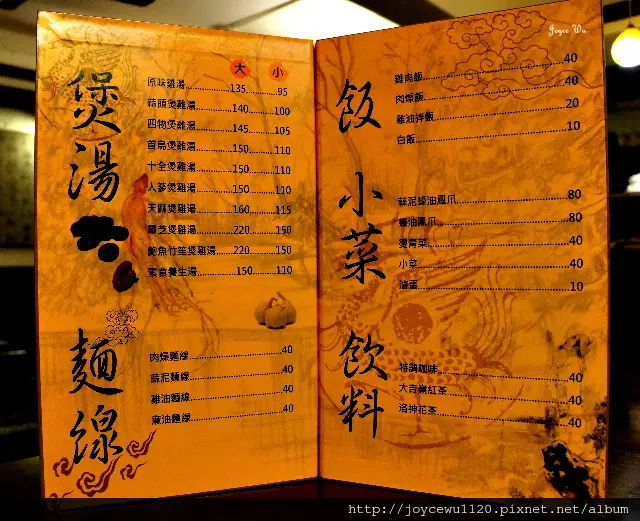 煲湯
大 小
原味雞湯 135 95
蒜頭煲雞湯 140 100
四物煲雞湯 145 105
首烏煲雞湯 150 110
十全煲雞湯 150 110
人蔘煲雞湯 150 110
天麻煲雞湯 160 115
靈芝煲雞湯 220 150
鮑魚竹笙煲雞湯 220 150
素食養生湯 150 110
麵線
肉燥麵線 40
蒜泥麵線 40
雞油麵線 40
麻油麵線 40
Joyce Wu.
飯
雞肉飯 40
肉燥飯 40
雞油拌飯 20
白飯 10
小菜
蒜泥蠔油鳳爪 80
蠔油鳳爪 80
燙青菜 40
小菜 40
滷蛋 10
飲料
特調咖啡 40
大吉嶺紅茶 40
洛神花茶 40
http://joycewu1120.pixnet.net/album